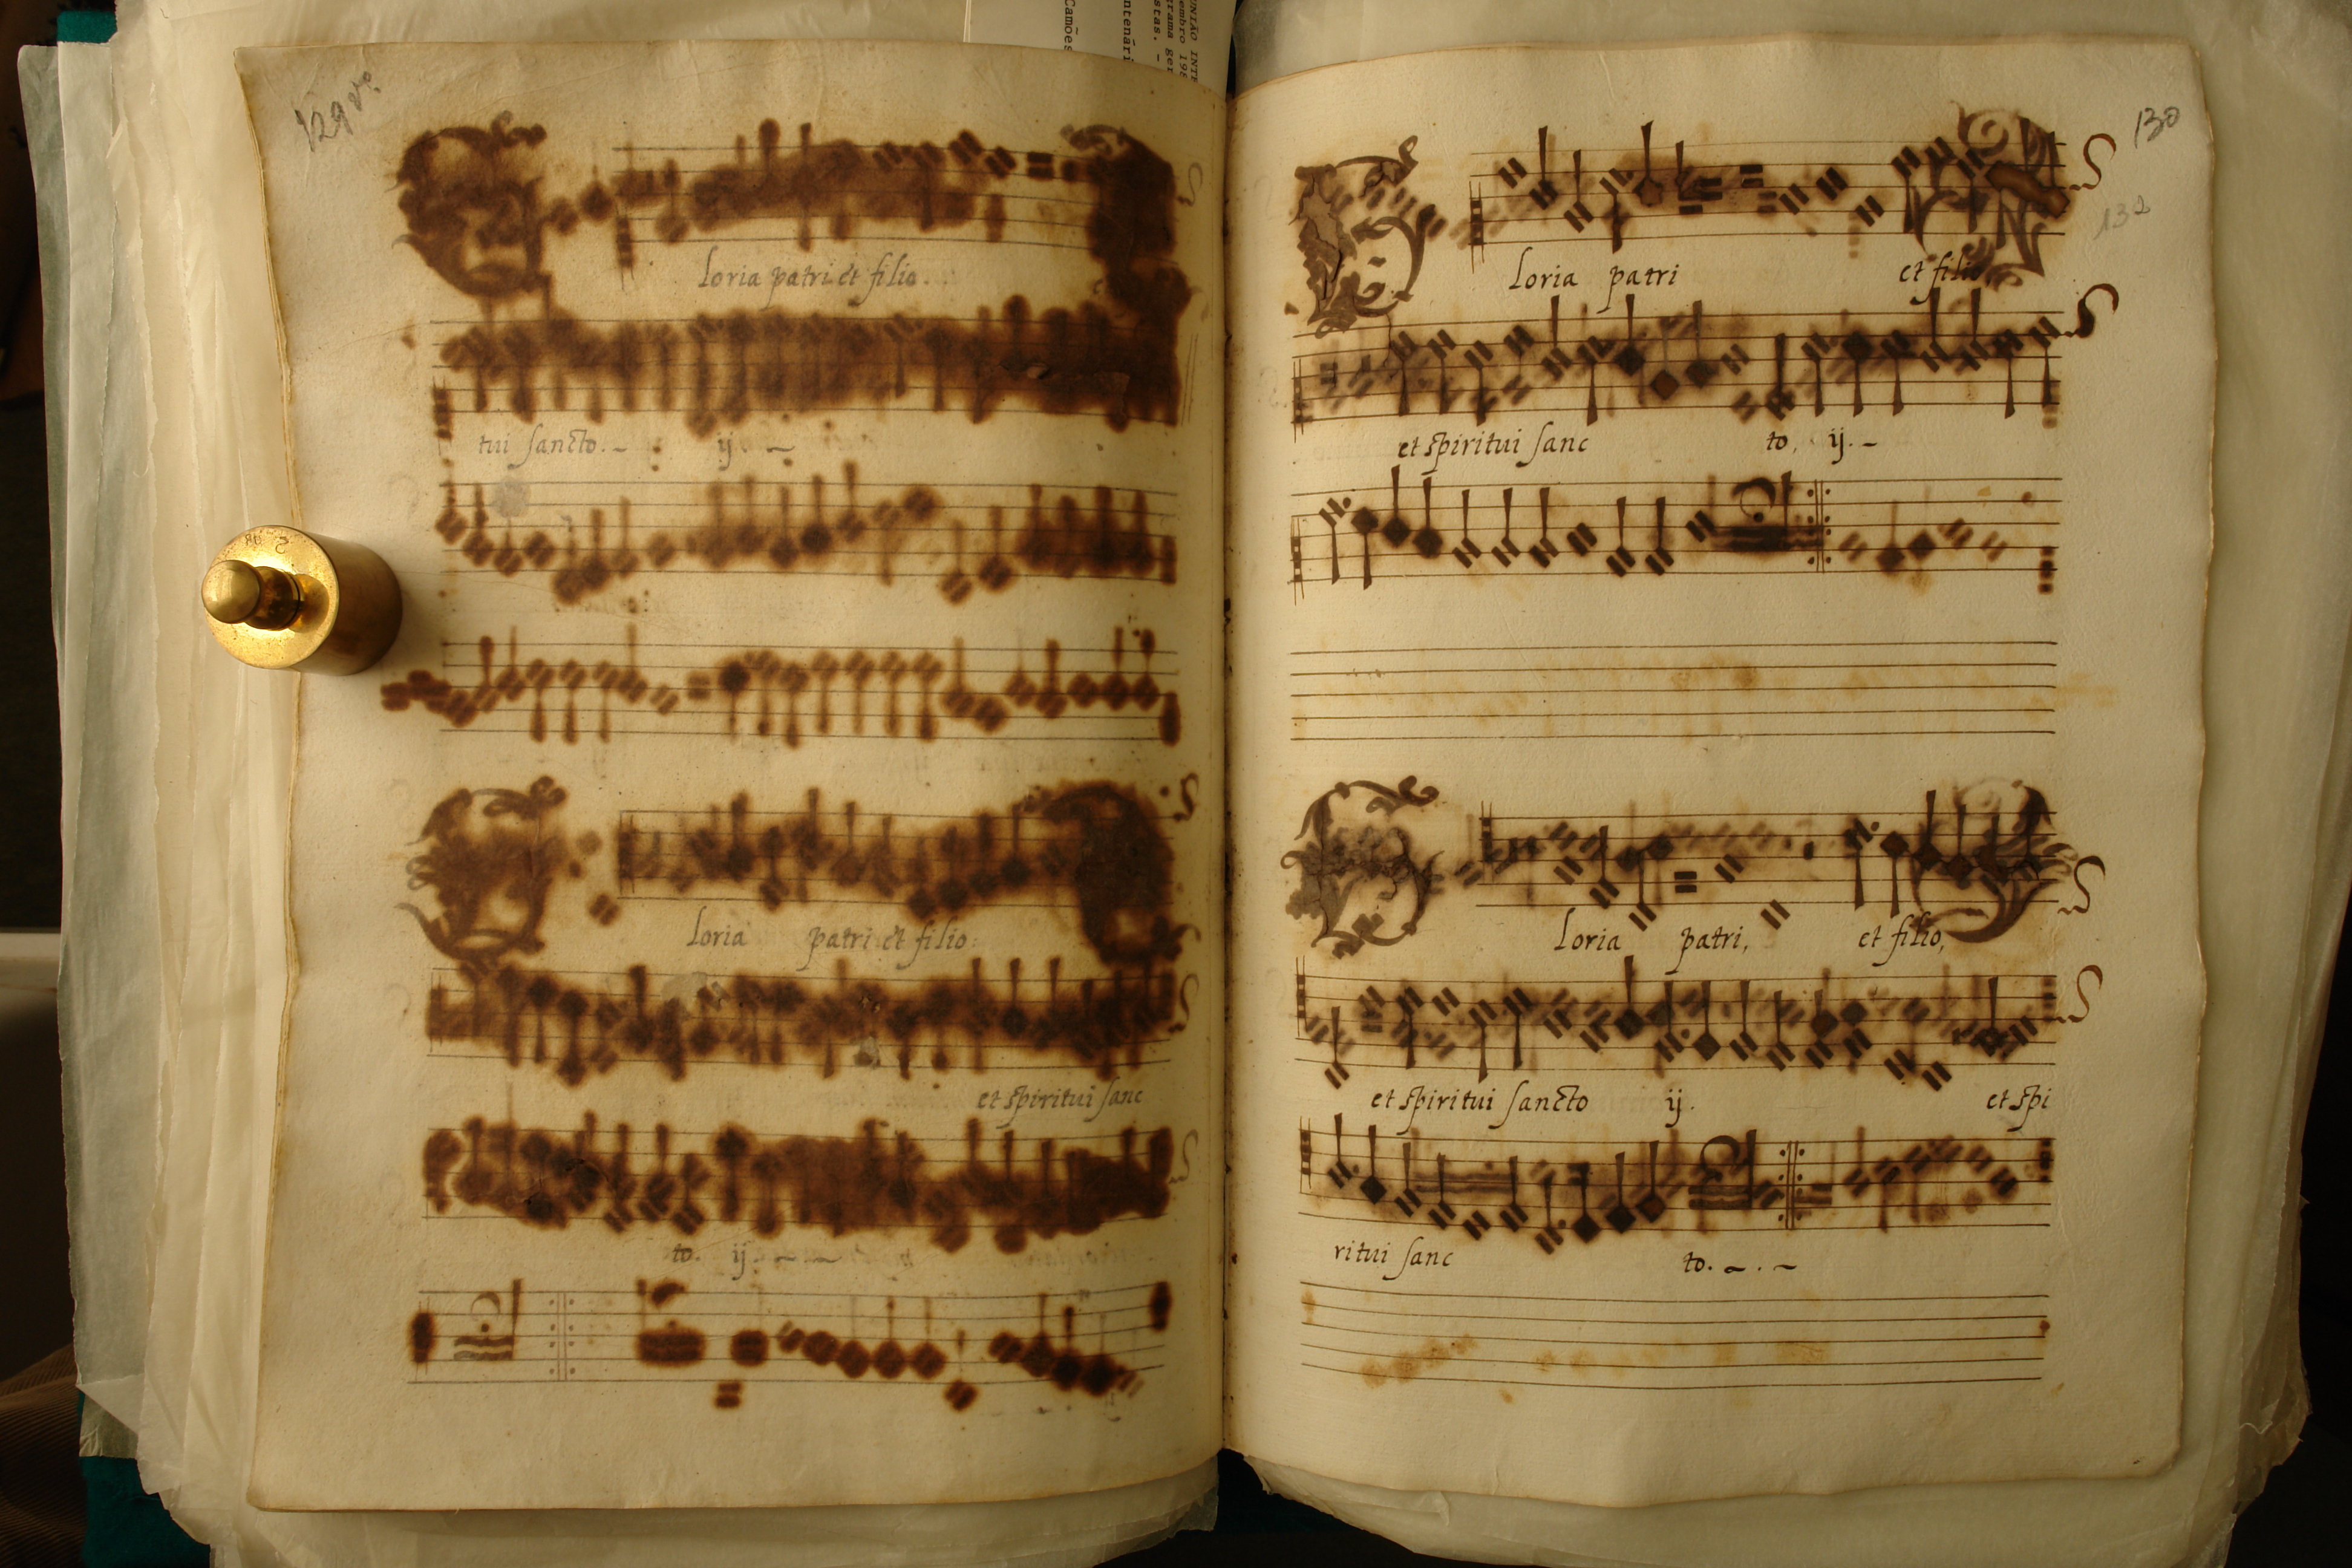 129 vº
loria patri et filio.
tui sancto. ij.
loria patri et filio.
et spiritui sanc
to. ij.
130
132
loria patri et filio
et spiritui sanc to, ij.
loria patri, et filio,
et spiritui sancto ij. et spi
ritui sanc to.
Camões